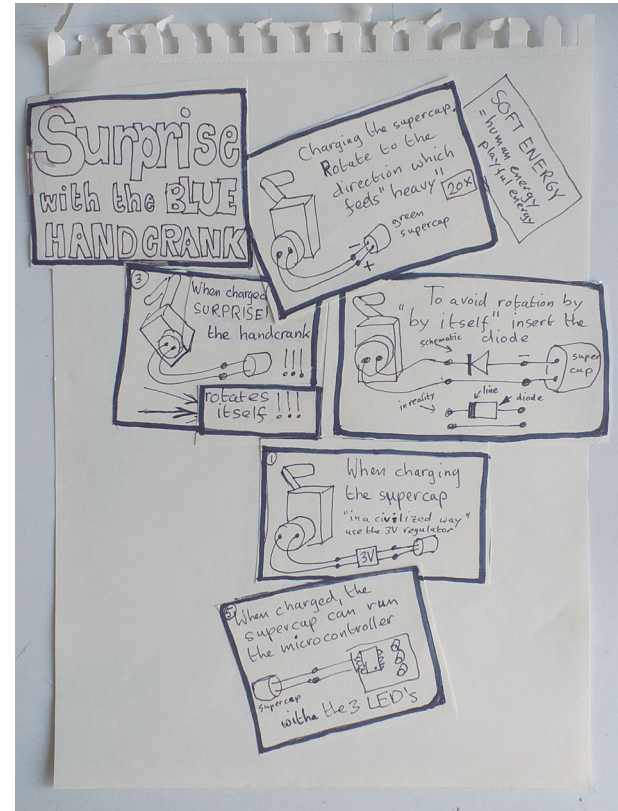 Surprise
with the BLUE
HANDCRANK
Charging the supercap
Rotate to the
direction which
feels "heavy"
20x
green
supercap
-
+
SOFT ENERGY
= human energy
playful energy
3
When charged
SURPRISE!
the handcrank
!!!
rotates
itself
!!!
"To avoid rotation by
by itself" insert the
diode
schematic
-
super
cap
in reality
line
diode
1
When charging
the supercap
"in a civilized way"
use the 3V regulator
3V
5
When charged, the
supercap can run
the microcontroller
supercap
withe the 3 LED's